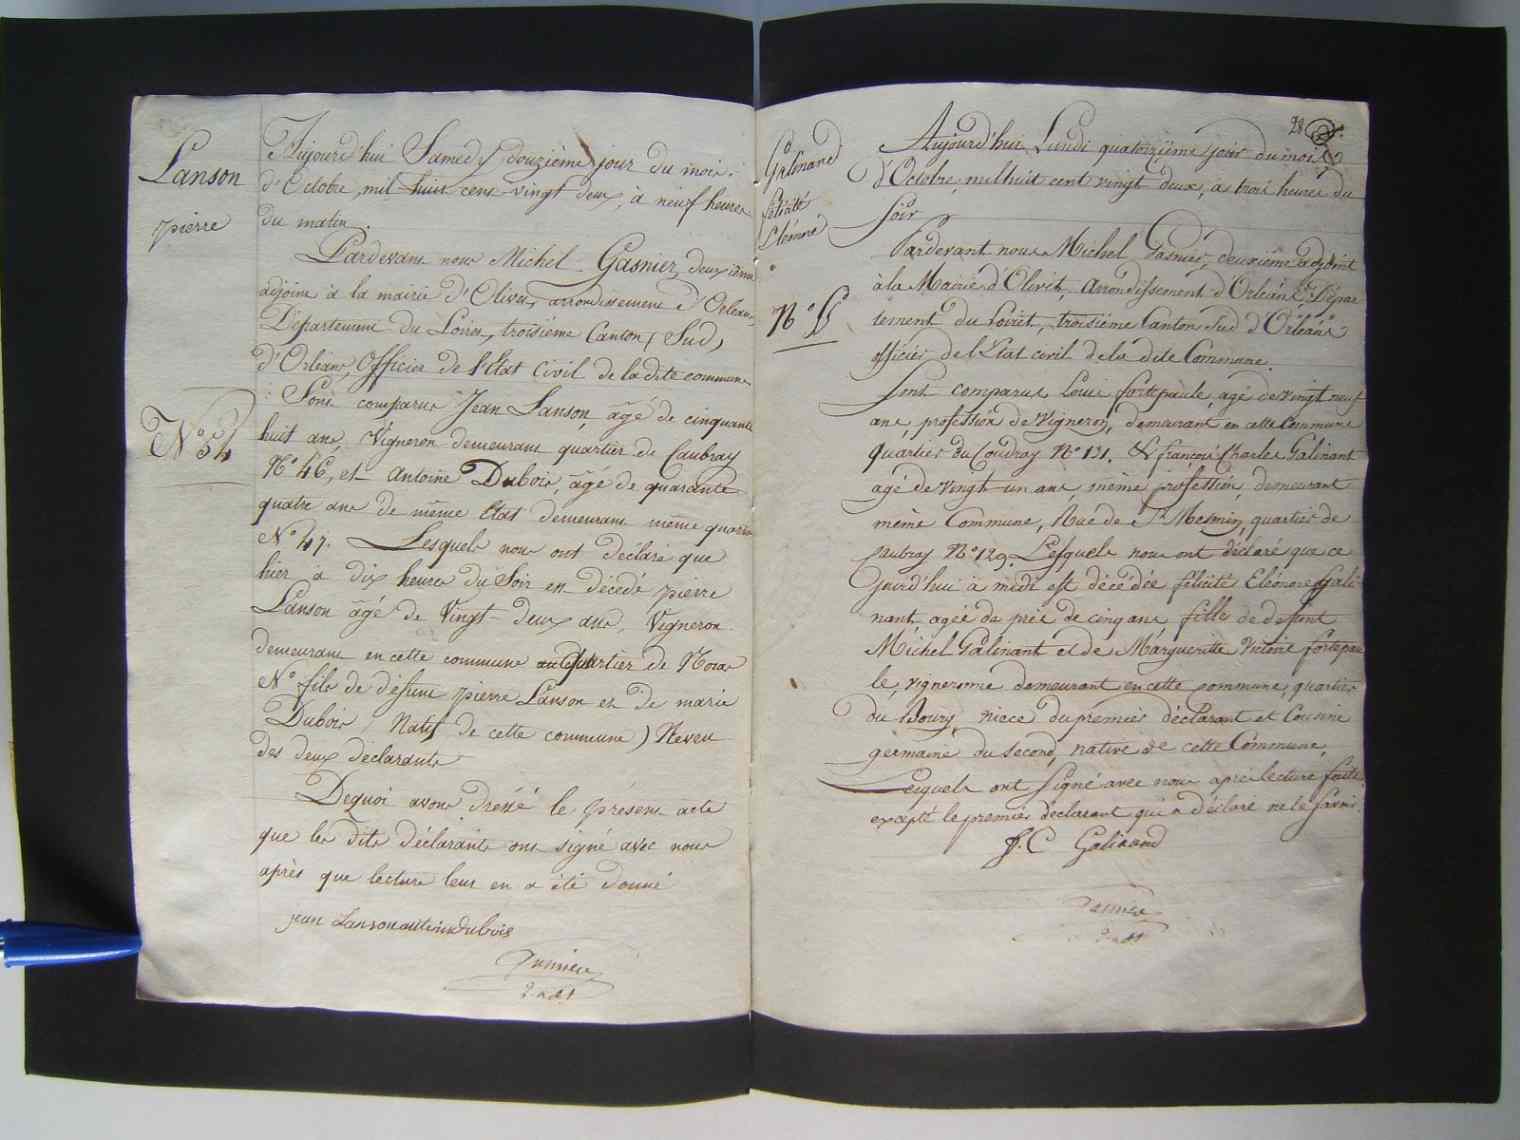 Lanson
pierre
N° 54
Aujourd'hui Samedy douzième jour du mois
d'Octobre mil huit cent vingt deux, à neuf heures
du matin.
Pardevant nous Michel Gasnier, deuxième
adjoint à la mairie d'Olivet, arrondissement d'Orléans,
Département du Loiret, troisième Canton, Sud,
d'Orléans, Officier de l'Etat Civil de la dite commune
Sont comparus Jean Lanson, âgé de cinquante
huit ans, Vigneron demeurant quartier du Caubray
N° 46, et Antoine Dubois, âgé de quarante
quatre ans de même Etat demeurant même quartier
N° 47. Lesquels nous ont déclaré que
hier à dix heures du Soir est décédé pierre
Lanson âgé de Vingt-deux ans, Vigneron
demeurant en cette commune quartier de
N° fils de défunt pierre Lanson et de marie
Dubois (Natif de cette commune) Neveu
des deux déclarants
Dequoi avons dressé le présent acte
que les dits déclarants ont signé avec nous
après que lecture leur en a été donné
jean Lanson antoine dubois
Gasnier
2e adt
28
Galinand
félicité
Eléonore
N°
Aujourd'hui Lundi quatorzième jour du mois
d'Octobre, mil huit cent vingt deux, à trois heures du
Soir
Pardevant nous Michel Gasnier, deuxième adjoint
à la Mairie d'Olivet, Arrondissement d'Orléans, Dépar
tement du Loiret, troisième Canton Sud d'Orléans
officier de l'Etat civil de la dite Commune.
Sont comparus Louis fortepaule, agé de vingt neuf
ans, profession de vigneron, demeurant en cette Commune
quartier du Coudray N° 121. & françois Charles Galinant
agé de vingt un ans, même profession, demeurant
même Commune, Rue de St Mesmin, quartier de
Caubray N° 129. Lesquels nous ont déclaré que ce
jourd'hui à midi est décédée félicité Eléonore Gali-
nant, agée de près de cinq ans, fille de defunt
Michel Galinant et de Margueritte Victoire fortepau
le, vigneronne demeurant en cette commune, quartier
du Bourg, niece du premier déclarant et Cousine
germaine du second, native de cette Commune,
Lesquels ont signé avec nous après lecture faite
excepté le premier déclarant qui a déclaré ne le savoir.
f. C Galinand
Gasnier
2e adt